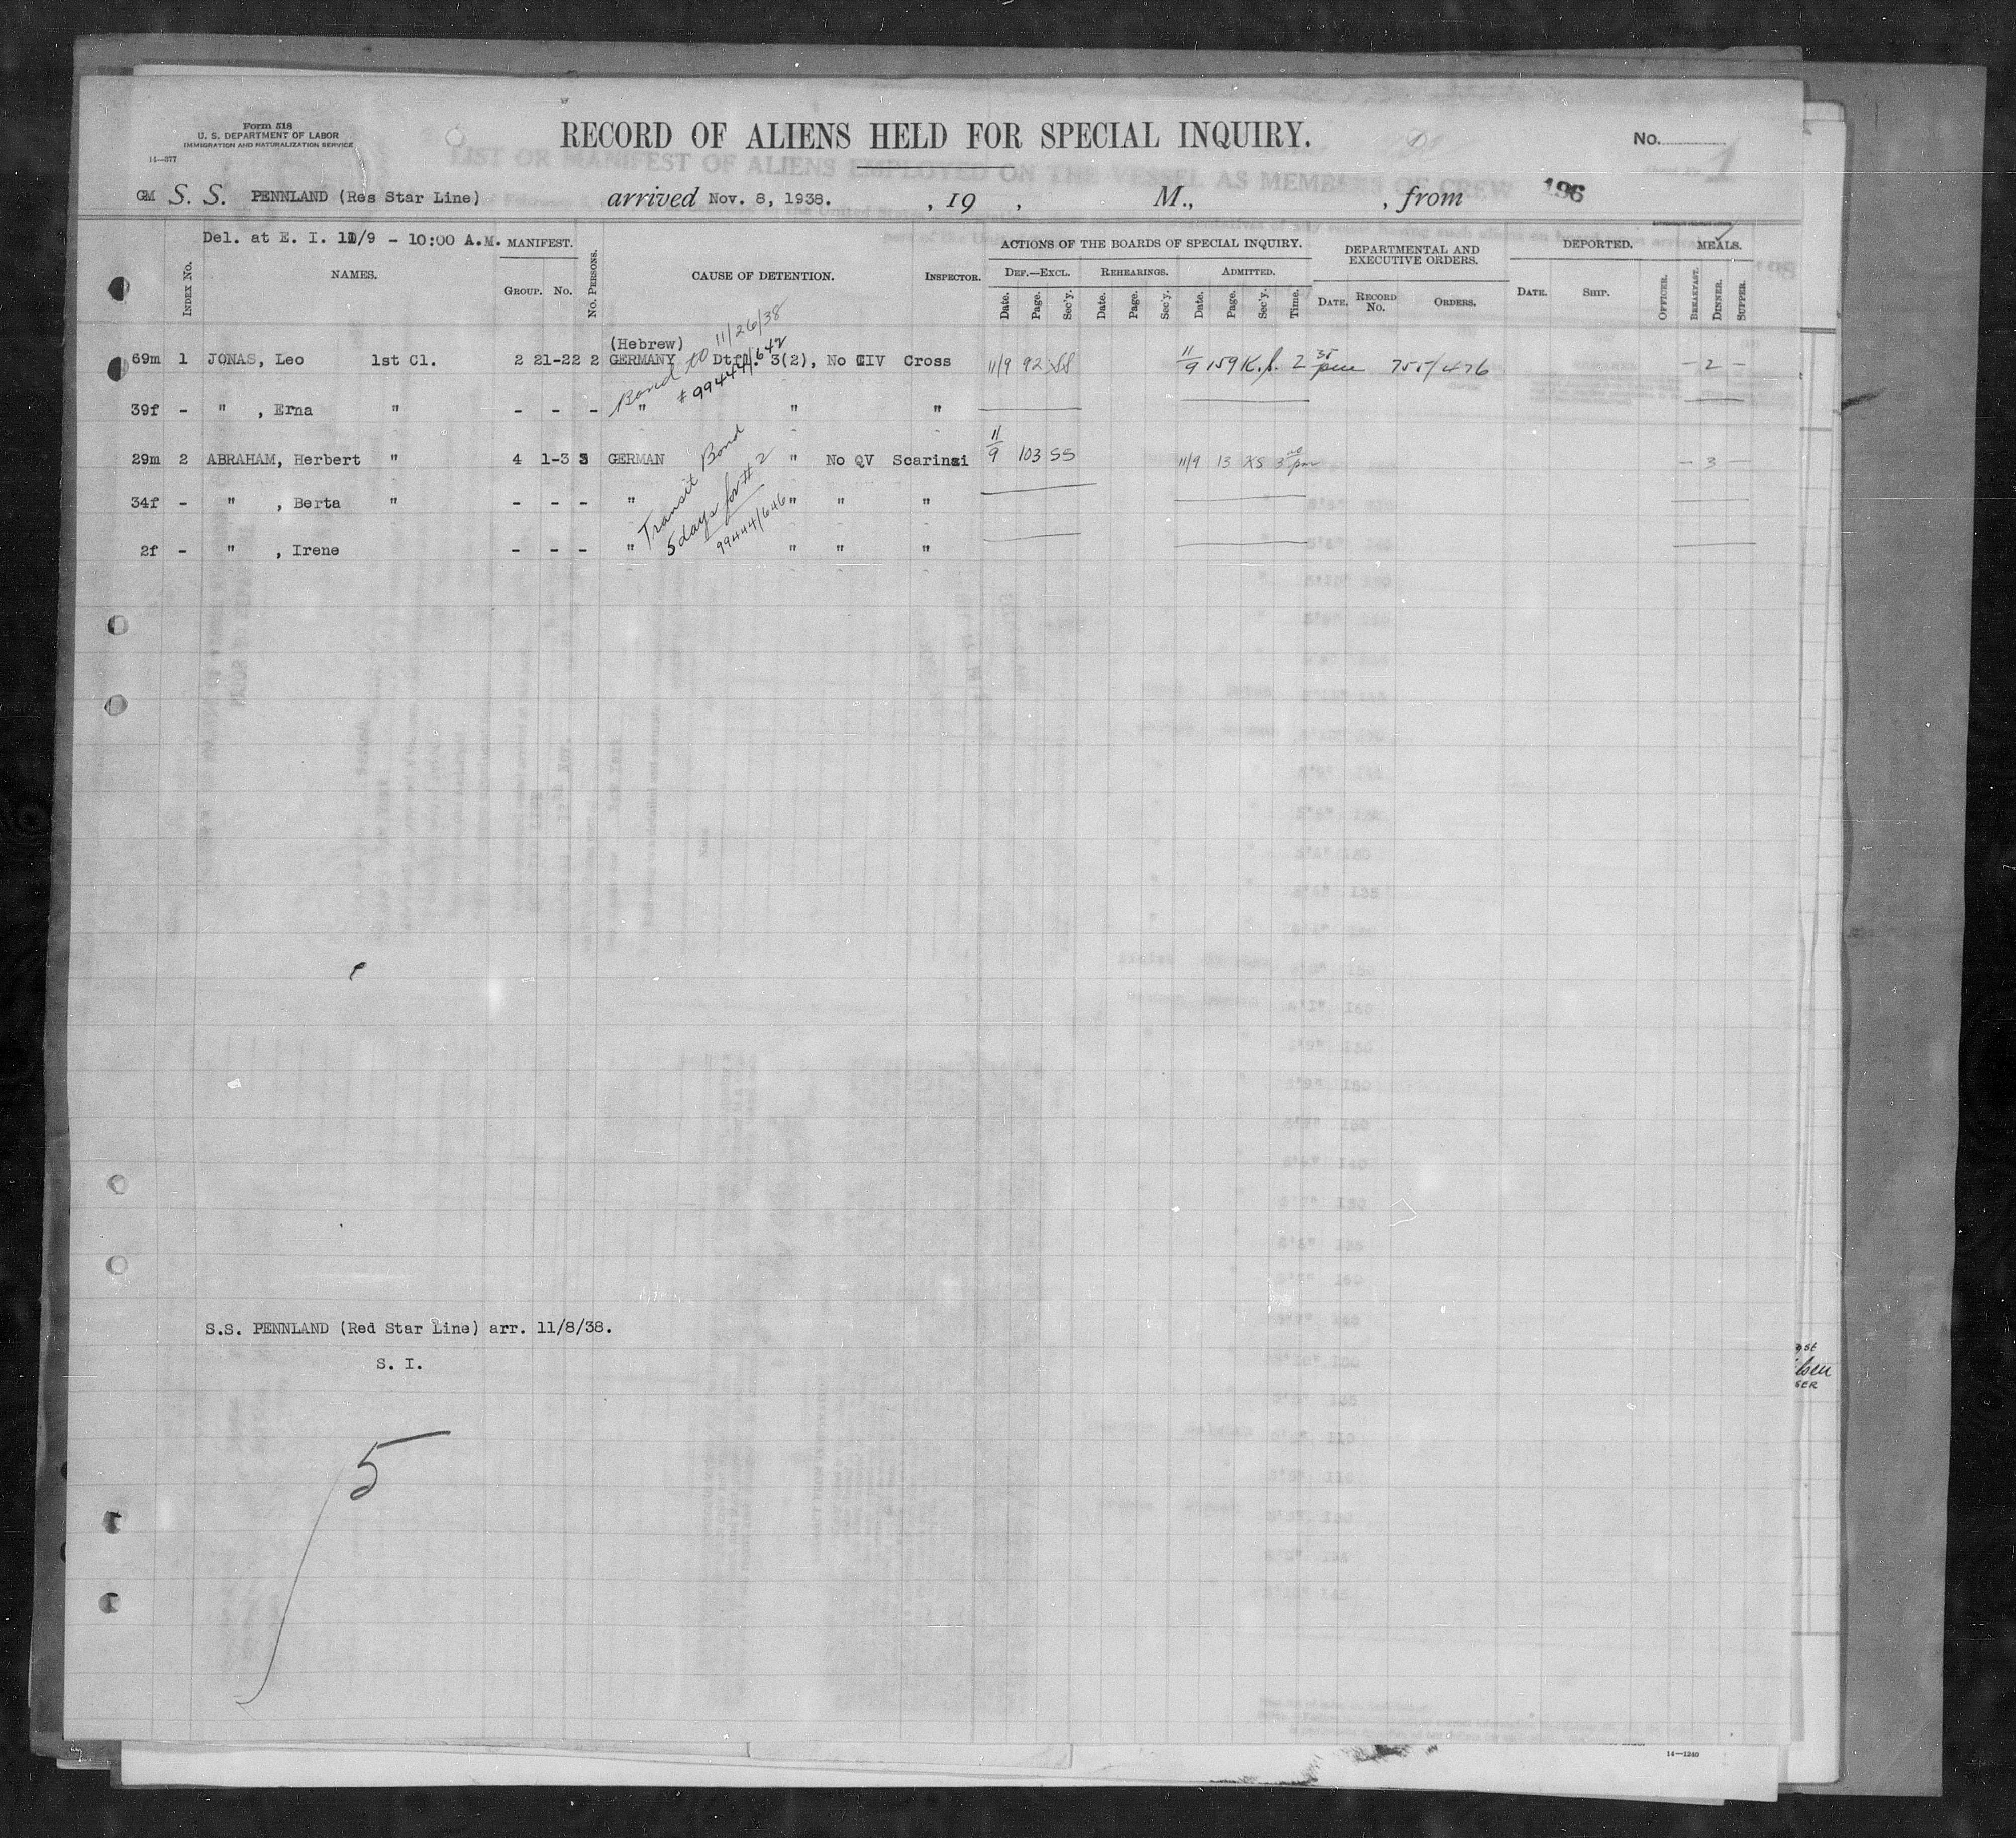 Form 518
U. S. DEPARTMENT OF LABOR
IMMIGRATION AND NATURALIZATION SERVICE
14—377
RECORD OF ALIENS HELD FOR SPECIAL INQUIRY.
No.
1
LIST OR MANIFEST OF ALIENS EMPLOYED ON THE VESSEL AS MEMBERS OF CREW
GM S. S. PENNLAND (Res Star Line) arrived Nov. 8, 1938. , 19 , M., , from
196
Del. at E. I. 11/9 - 10:00 A.M.
INDEX No.
NAMES.
MANIFEST.
GROUP. No.
No. PERSONS.
CAUSE OF DETENTION.
INSPECTOR.
ACTIONS OF THE BOARDS OF SPECIAL INQUIRY.
DEF.—EXCL. REHEARINGS. ADMITTED.
Date. Page. Sec'y. Date. Page. Sec'y. Date. Page. Sec'y. Time.
DEPARTMENTAL AND EXECUTIVE ORDERS.
DATE. RECORD No. ORDERS.
DEPORTED.
DATE. SHIP.
OFFICER.
MEALS.
BREAKFAST. DINNER. SUPPER.
(Hebrew)
69m 1 JONAS, Leo 1st Cl. 2 21-22 2 GERMANY 3(2), No CIV Cross 11/9 92 SS 11/9 159 K.S. 2 35 pm 755/476 — 2 —
Bond to 11/26/38
#99444/642
39f - " , Erna " - - - " " "
29m 2 ABRAHAM, Herbert " 4 1-3 3 GERMAN " No QV Scarinzi 11/9 103 SS 11/9 13 KS 3 pm — 3 —
34f - " , Berta " - - - " " " "
2f - " , Irene - - - " " " "
Transit Bond
5 days for #2
99444/646
S.S. PENNLAND (Red Star Line) arr. 11/8/38.
S. I.
5
14—1240